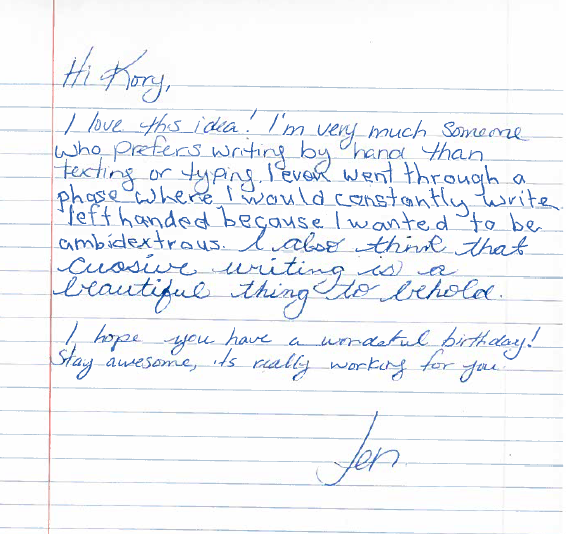 Hi Kory,
I love this idea! I'm very much someone
who prefers writing by hand than
texting or typing. I even went through a
phase where I would constantly write
left handed because I wanted to be
ambidextrous. I also think that
cursive writing is a
beautiful thing to behold.
I hope you have a wonderful birthday!
Stay awesome, its really working for you.
Jen